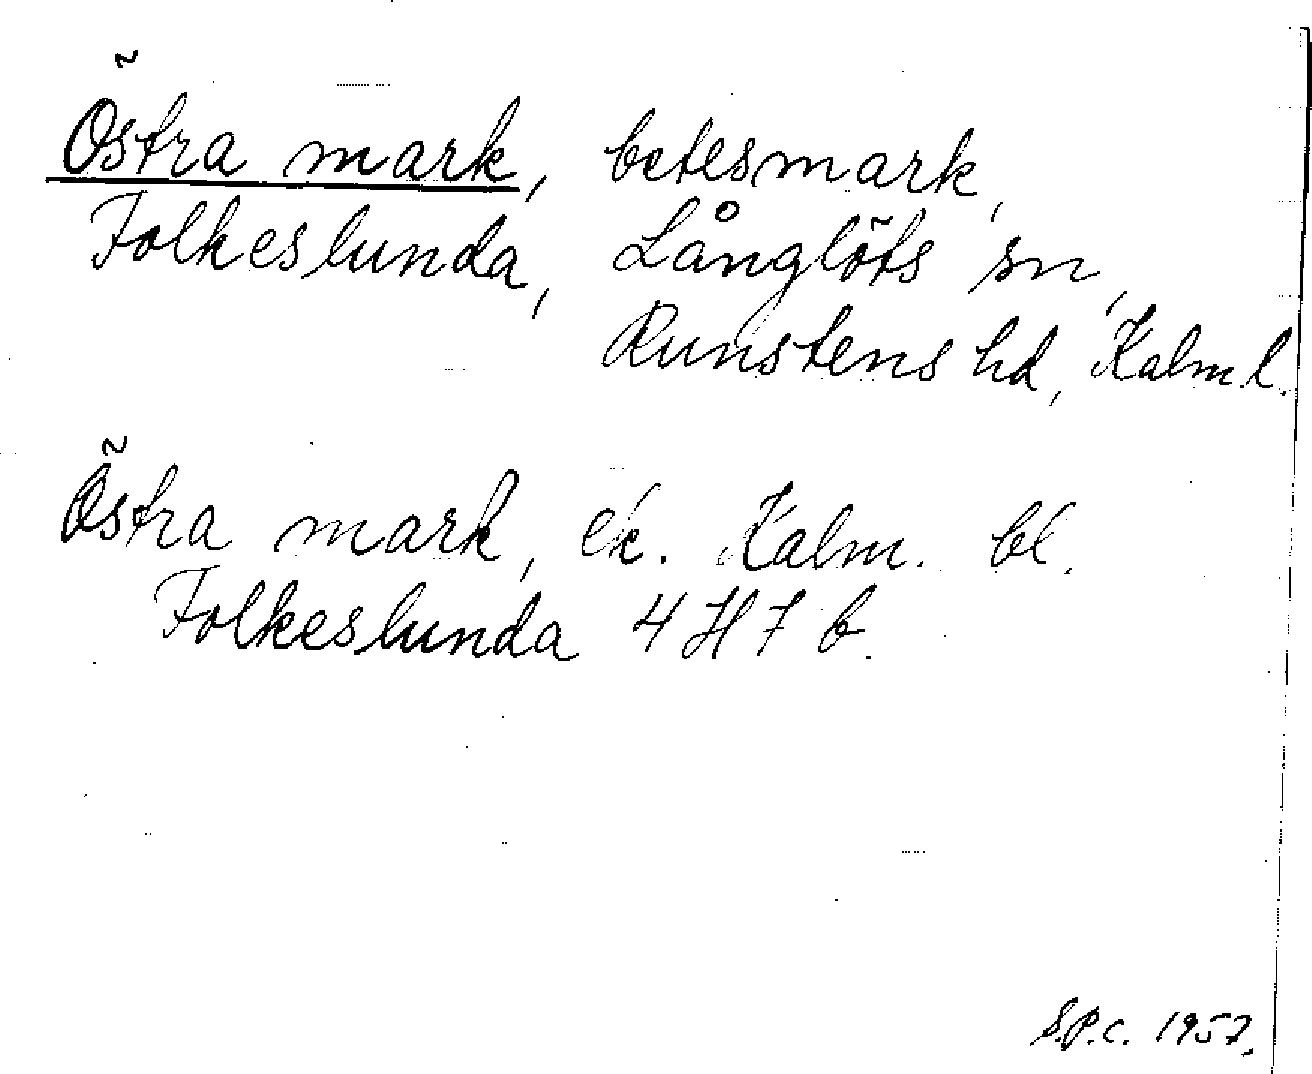 Östra mark, betesmark,
Folkeslunda, Långlöts sn,
Runstens hd, Kalm. l.
Östra mark, ek. Kalm. bl.
Folkeslunda 4 H 7 b.
S.P.C. 1957.